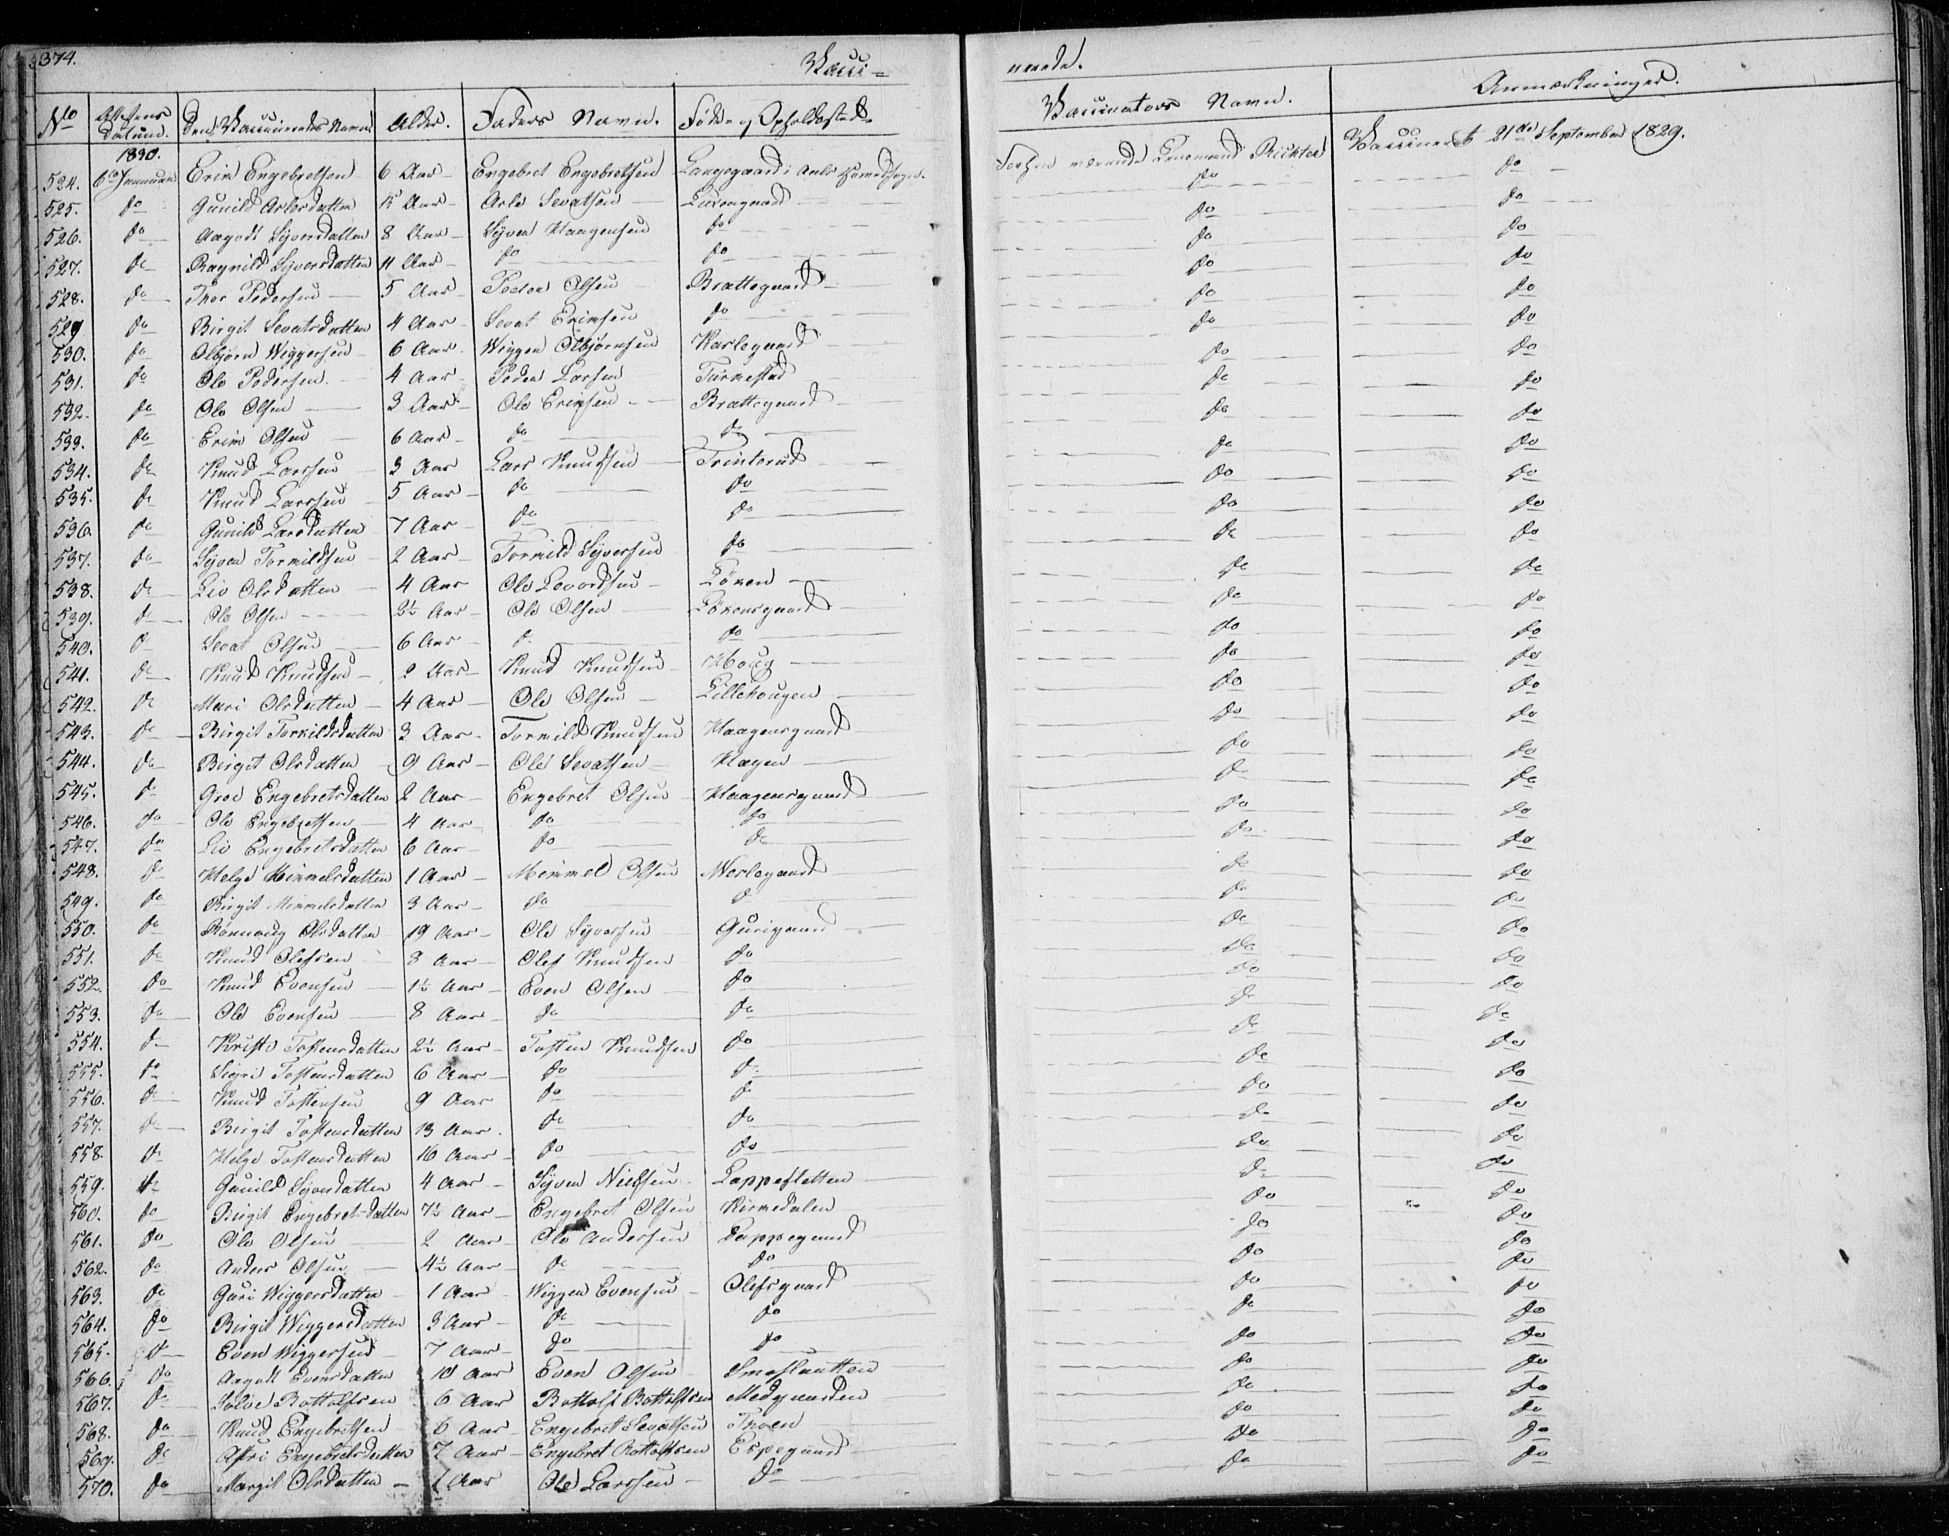 374. Vacci= nerede.
No Attestens Datum. Den Vaccineredes Navn Alder. Faders Navn. Föde- og Opholdssted. Vaccinateurs Navn. Anmærkninger.
1830.
524. 6te Januar Erik Engebretsen 6 Aar Engebret Engebretsen Langegaard i Aals Hovedsogn. værende Lensmand Richter Vaccineret 21de September 1829.
525. do Gunild Arlesdatter Aar Arle Sevatsen do do
526. do Aagodt Syversdatter 8 Aar Syver Haagensen do do do
527. do Ragnild Syversdatter 11 Aar do do do do
528. do Thor Pedersen 5 Aar Peder Olsen Brattegaard do do
529 do Birgit Sevatsdatter 4 Aar Sevat Eriksen do do do
530. do Olbjörn Wiggersen 6 Aar Wigger Olbjørnsen Karlsgaard do do
531. do Ole Pedersen 4 Aar Peder Larsen do do
532. do Ole Olsen 3 Aar Ole Eriksen Brattegaard do do
533. do Erik Olsen 6 Aar do do do do
534. do Knud Larssen 3 Aar Lars Knudsen Trinterud do do
535. do Knud Larssen 5 Aar do do do do
536. do Gunild Larsdatter 7 Aar do do do do
537. do Syver Torkildsen 2 Aar Torkild Syversen do do do
538. do Liv Olsdatter 4 Aar Ole Levordsen Löken do do
539. do Ole Olsen 2½ Aar Ole Olsen Lökensgaard do do
540. do Sevat Olsen 6 Aar do do do do
541. do Knud Knudsen 2 Aar Knud Knudsen Houg do do
542. do Mari Olsdatter 4 Aar Ole Olsen Lillehougen do do
543. do Birgit Torkildsdatter 3 Aar Torkild Knudsen Haagensgaard do do
544. do Birgit Olsdatter 9 Aar Ole Sevatsen Hagen do do
545. do Groe Engebretsdatter 2 Aar Engebret Olsen Haagensgaard do do
546. do Ole Engebretsen 4 Aar do do do do
547. do Liv Engebretsdatter 6 Aar do do do do
548. do Helge Himmelsdatter 1 Aar Himmel Olsen Nerlegaard do do
549. do Birgit Himmelsdatter 3 Aar do do do do
550. do Rönnoug Olsdatter 19 Aar Ole Syversen Gurigaard do do
551. do Knud Olefsen 8 Aar Olef Knudsen do do do
552. do Knud Evensen 1½ Aar Even Olsen do do do
553. do Ole Evensen 8 Aar do do do do
554. do Kristi Tostensdatter 2½ Aar Tosten Knudsen do do do
555. do Sigri Tostensdatter 6 Aar do do do do
556. do Knud Tostensen 9 Aar do do do do
557. do Birgit Tostensdatter 13 Aar do do do do
558. do Helge Tostensdatter 16 Aar do do do do
559. do Gunild Syversdatter 4 Aar Syver Nielsen Lappesletten do do
560. do Birgit Engebretsdatter 7½ Aar Engebret Olsen Kirkedalen do do
561. do Ole Olsen 2 Aar Ole Andersen Pappegaard do do
562. do Anders Olsen 4½ Aar do do do do
563. do Guri Wiggersdatter 1 Aar Wigger Evensen Olefsgaard do do
564. do Birgit Wiggersdatter 3 Aar do do do do
565. do Even Wiggersen 7 Aar do do do do
566. do Aagodt Evensdatter 10 Aar Even Olsen do do
567. do Bottolfsen 6 Aar Bottolf Bottolfsen Medgaarden do do
568. do Knud Engebretsen 6 Aar Engebret Sevatsen do do
569. do Engebretsdatter 7 Aar Engebret Bottolfsen Espegaard do do
570. do Margit Olsdatter 1 Aar Ole Larssen do do do